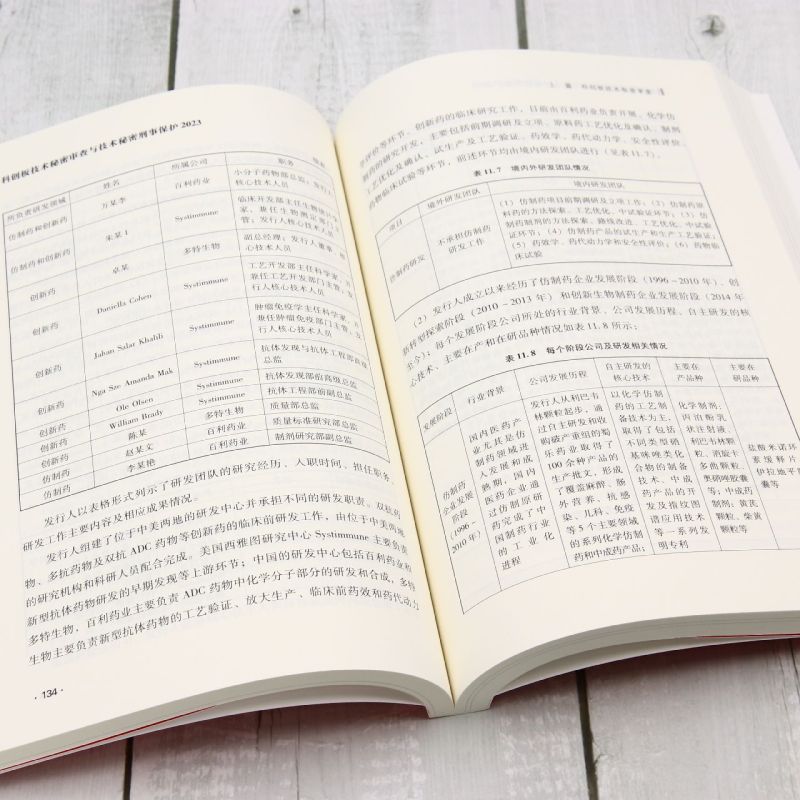 科创板技术秘密审查与技术秘密刑事保护 2023
所负责研发领域 姓名 所属公司 职务
仿制药和创新药 万某李 百利药业 小分子药物部总监;发行人核心技术人员
仿制药和创新药 朱某1 Systimmune
创新药 卓某 多特生物 副总经理;发行人董事、核心技术人员
创新药 Daniella Cohen Systimmune 工艺开发部主任科学家,并兼任工艺开发部门主管;发行人核心技术人员
创新药 Jahan Salar Khalili Systimmune 肿瘤免疫学主任科学家,并兼任肿瘤免疫部门主管;发行人核心技术人员
创新药 Nga Sze Amanda Mak Systimmune 抗体发现与抗体工程部高级总监
创新药 Ole Olsen Systimmune 抗体发现部前高级总监
创新药 William Brady Systimmune 抗体工程部前副总监
创新药 陈某 多特生物 质量部总监
仿制药 赵某文 百利药业 质量标准研究部总监
仿制药 李某艳 百利药业 制剂研究部副总监
发行人以表格形式列示了研发团队的研究经历、入职时间、担任职务、
研发工作主要内容及相应成果情况。
发行人组建了位于中美两地的研发中心并承担不同的研发职责。双抗药
物、多抗药物及双抗 ADC 药物等创新药的临床前研发工作,由位于中美两地
的研究机构和科研人员配合完成。美国西雅图研究中心 Systimmune 主要负责
新型抗体药物研发的早期发现等上游环节;中国的研发中心包括百利药业和
多特生物,百利药业主要负责 ADC 药物中化学分子部分的研发和合成,多特
生物主要负责新型抗体药物的工艺验证、放大生产、临床前药效和药代动力
· 134 ·
学评价等环节。创新药的临床研究工作,目前由百利药业负责开展。化学仿
制药的研究开发,主要包括前期调研及立项、原料药工艺优化及确认、制剂
工艺优化及确认、试生产及工艺验证、药效学、药代动力学、安全性评价、
药物临床试验等环节,前述环节均由境内研发团队进行(见表 11.7)。
表 11.7 境内外研发团队情况
项目 境外研发团队 境内研发团队
仿制药研发 不承担仿制药研发工作 (1)仿制药项目前期调研及立项工作;(2)仿制药原料药的方法探索、工艺优化、中试验证环节;(3)仿制药制剂的方法探索、路线改进、工艺优化、中试验证环节;(4)仿制药产品的试生产和生产工艺验证;(5)药效学、药代动力学和安全性评价;(6)药物临床试验
(2)发行人成立以来经历了仿制药企业发展阶段(1996－2010 年)、创
新转型探索阶段(2010－2013 年)和创新生物制药企业发展阶段(2014 年
至今);每个发展阶段公司所处的行业背景、公司发展历程、自主研发的核
心技术、主要在产和在研品种情况如表 11.8 所示:
表 11.8 每个阶段公司及研发相关情况
发展阶段 行业背景 公司发展历程 自主研发的核心技术 主要在产品种 主要在研品种
仿制药企业发展阶段(1996－2010 年)
国内医药产业尤其是仿制药领域进入发展和成熟期,国内医药企业通过仿制原研药完成了中国制药行业的工业化进程
发行人从利巴韦林颗粒起步,通过自主研发和收购破产重组的蜀乐药业取得了 100 余种产品的生产批文,形成了覆盖麻醉、肠外营养、抗感染、儿科、免疫等 5 个主要领域的系列化学仿制药和中成药产品;
以化学仿制药的工艺制备技术为主,取得了包括不同类型硝基咪唑类化合物的制备技术、中成药产品的开发及指纹图谱应用技术等一系列发明专利
化学制剂:丙泊酚乳状注射液、利巴韦林颗粒、消旋卡多曲颗粒、奥硝唑胶囊等;中成药制剂:黄芪颗粒、柴黄颗粒等
盐酸米诺环素缓释片、伊拉地平胶囊等